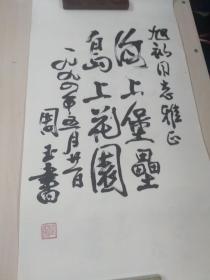 旭同志雅正
上堡壘
島上花園
一九九年五月廿日
周玉書